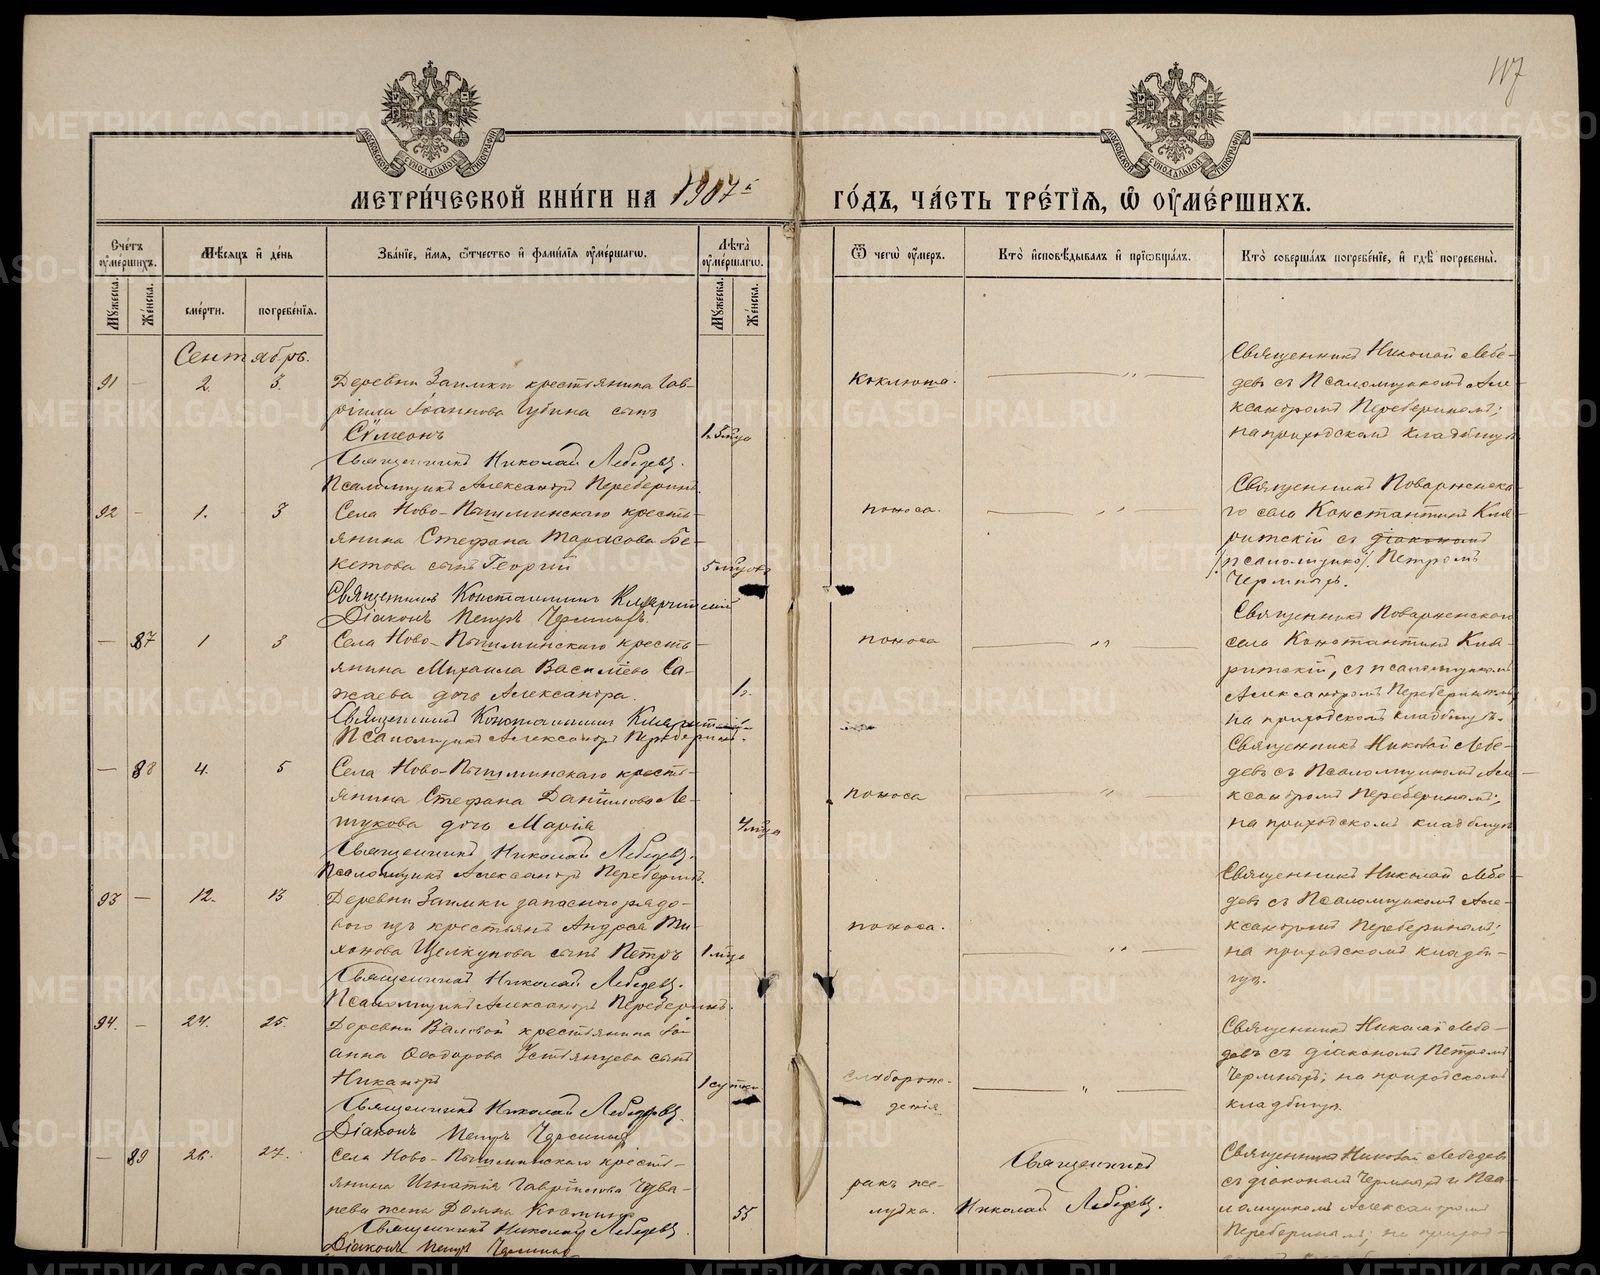 117
МЕТРИ́ЧЕСКОЙ КНИ́ГИ НА 1907й ГО́ДЪ, ЧА́СТЬ ТРЕ́ТІѦ, Ѡ ОУМЕ́РШИХЪ.
Сче́тъ оуме́ршихъ.
Мѣ́сяцъ и де́нь
Зва́ніе, и́мя, о́тчество и фами́лія оуме́ршагѡ.
Лѣта̀ оуме́ршагѡ.
Ѿ чегѡ̀ оу́меръ.
Кто̀ исповѣ́дывалъ и пріѡбща́лъ.
Кто̀ соверша́лъ погребе́ніе, и гдѣ̀ погребены̀.
Му́жеска.
Же́нска.
сме́рти.
погребе́нія.
Му́жеска.
Же́нска.
Сентябрь.
91 — 2. 3.
Деревни Заимки крестьянина Гав-
ріила Іоаннова Губина сынъ
Сѵмеонъ
Священникъ Николай Лебедевъ.
Псаломщикъ Александръ Переберинъ.
коклюша.
Священникъ Николай Лебе-
девъ съ Псаломщикомъ Але-
ксандромъ Переберинымъ;
на приходскомъ кладбищѣ
92 — 1. 3
Села Ново-Пышминскаго кресть-
янина Стефана Тарасова Бе-
кетова сынъ Георгій
5 мѣсяцъ
Священникъ Константинъ
Діаконъ Петръ
поноса.
Священникъ Поварненска-
го села Константинъ
съ діакономъ
/псаломщико/ Петромъ
— 87 1 3
Села Ново-Пышминскаго кресть-
янина Михаила Васильева Са-
жаева дочь Александра.
1г.
Священникъ Константинъ
Псаломщикъ Александръ Переберинъ.
поноса
Священникъ Поварненскаго
села Константинъ
съ псаломщикомъ
Александромъ Переберинымъ
на приходскомъ кладбищѣ.
— 88 4. 5
Села Ново-Пышминскаго кресть-
янина Стефана Даніилова Ле-
щукова дочь Марія
Священникъ Николай Лебедевъ.
Псаломщикъ Александръ Переберинъ.
поноса
Священникъ Николай Лебе-
девъ съ Псаломщикомъ Але-
ксандромъ Переберинымъ;
на приходскомъ кладбищѣ
93 — 12. 13
Деревни Заимки запасного рядо-
вого изъ крестьянъ Андрея Ти-
хонова Щелкунова сынъ Петръ
Священникъ Николай Лебедевъ.
Псаломщикъ Александръ Переберинъ.
поноса.
Священникъ Николай Лебе-
девъ съ Псаломщикомъ Але-
ксандромъ Переберинымъ;
на приходскомъ кладби-
щѣ.
94. — 24. 25.
Деревни Валовой крестьянина Іо-
анна Ѳеодорова Устьянцева сынъ
Никаноръ
1 сутки
Священникъ Николай Лебедевъ.
Діаконъ Петръ
слаборож-
денія
Священникъ Николай Лебе-
девъ съ діакономъ Петромъ
на приходскомъ
кладбищѣ.
— 89 26. 27.
Села Ново-Пышминскаго кресть-
янина Игнатія Гавріилова Чува-
жена Домна
55
Священникъ Николай Лебедевъ
Діаконъ Петръ
ракъ же-
лудка.
Священникъ
Николай Лебедевъ.
Священникъ Николай Лебедевъ
съ діакономъ и Пса-
ломщикомъ Александромъ
Переберинымъ; на приход-